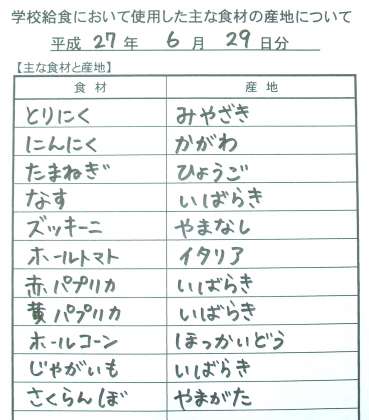 学校給食において使用した主な食材の産地について
平成 27 年 6 月 29 日分
【主な食材と産地】
食 材 産 地
とりにく みやざき
にんにく かがわ
たまねぎ ひょうご
なす いばらき
ズッキーニ やまなし
ホールトマト イタリア
赤パプリカ いばらき
黄パプリカ いばらき
ホールコーン ほっかいどう
じゃがいも いばらき
さくらんぼ やまがた